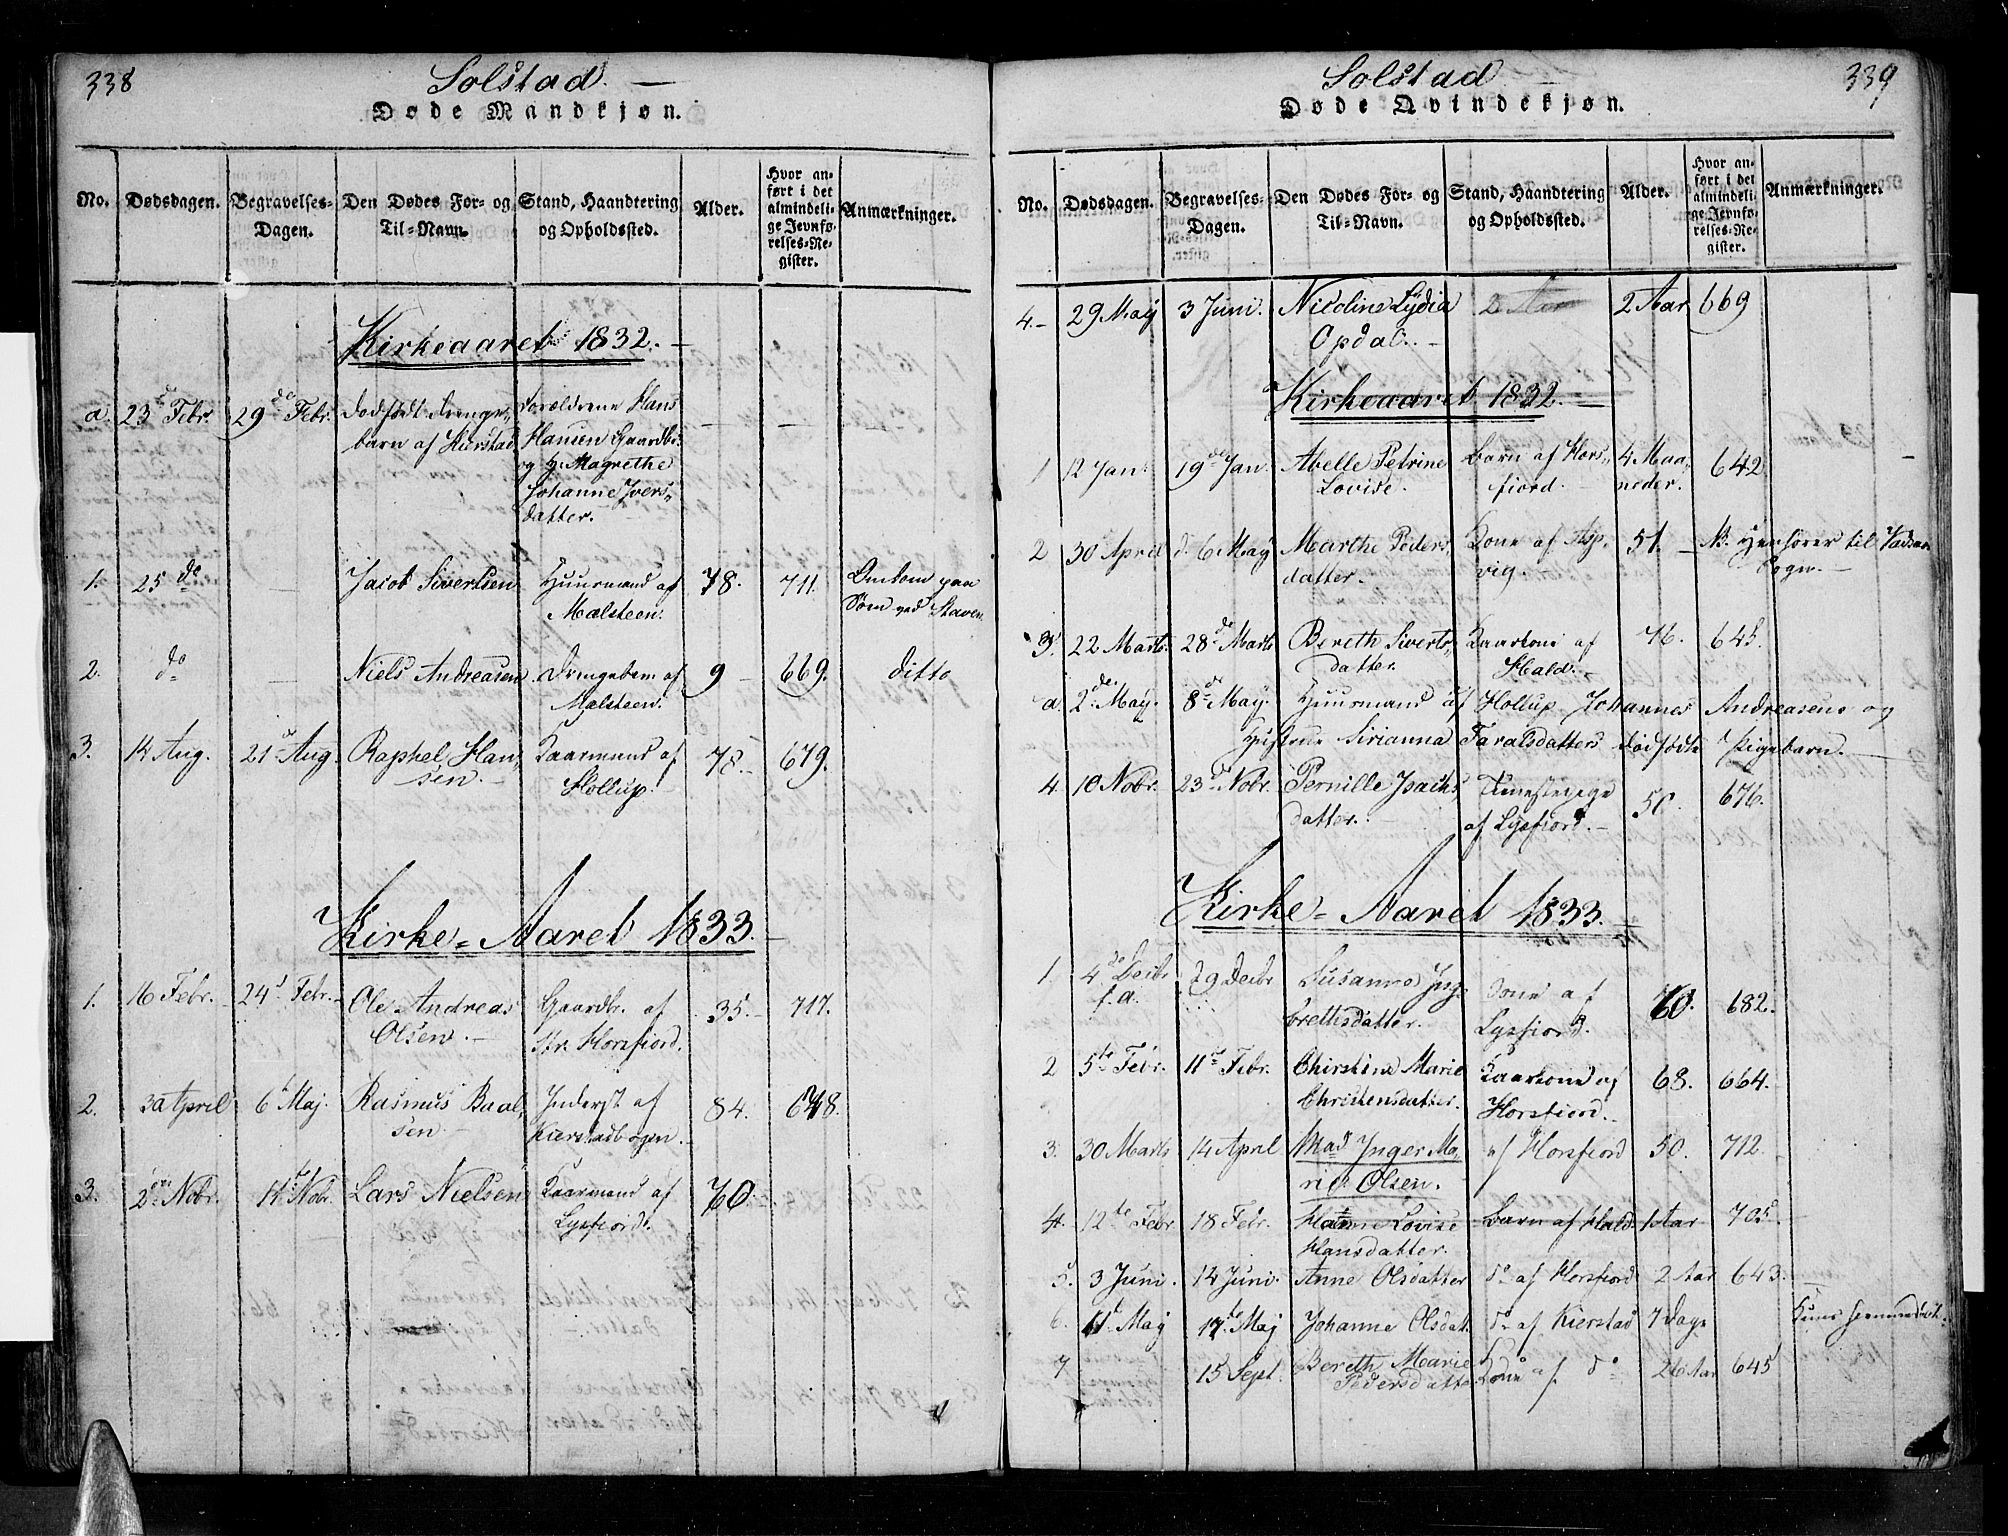 338
Solstad.
Døde Mandkjøn.
No.
Dødsdagen.
Begravelses-
Dagen.
Den Dødes For- og
Til-Navn.
Stand, Haandtering
og Opholdssted.
Alder.
Hvor an-
ført i det
almindeli-
ge Jevnfø-
relses-Re-
gister.
Anmærkninger.
Kirkeaaret 1832.
a. 23de Febr. 29de Febr. dødfødt drenge-
barn af Kierstad
Forældrene Hans
Hansen Gaardbr.
og H. Magrethe
Johanne Ivers-
datter.
1. 25 do — Jacob Sivertsen Huusmand af
Malsteen. 78. 711. Omkom paa
Søen ved Staven
2. do — Niels Andreasen Drengebarn af
Malsteen. 9 — 669. ditto
3. 14 Aug. 21d Aug. Raphel Han-
sen. Kaarmand af
Hollup. 78. 679.
Kirke-Aaret 1833.
1. 16 Febr. 24d Febr. Ole Andreas
Olsen. Gaardbr. af
Str. Horsfiord. 35. 717.
2. 30 April 6t Maj. Rasmus Baal-
sen Inderst af
Kierstadbogen. 84. 648.
3. 2den Nobr. Nobr. Lars Nielsen Kaarmand af
Lysfiord. 70.
339
Solstad
Døde Qvindekjøn.
No.
Dødsdagen.
Begravelses-
Dagen.
Den Dødes For- og
Til-Navn.
Stand, Haandtering
og Opholdssted.
Alder.
Hvor an-
ført i det
almindeli-
ge Jevnfø-
relses-Re-
gister.
Anmærkninger.
4. 29 Maÿ 3 Juni. Nicoline Lydia
Opdal. 2 Aar 2 Aar 669
Kirkeaaret 1832.
1 12 Jan. 19de Jan. Abelle Petrine
Lovise. Barn af Hors-
fiord. 4 Maa-
neder. 642
2 30 April d. 6 Maÿ Marthe Peders
datter. Kone af Asp-
vig. 51. NB. Henhører til Vadsøe
Sogn.
3. 22 Marts. 28de Marts Bereth Siverts-
datter. Kaarkone af
Hald. 76. 645.
a. 2de Maÿ. 8de Maÿ. Huusmand af Hollup Johannes Andreasens og
Hustrue Sirianna Taralsdatters dødfødte Pigebarn.
4. 10 Nobr. 23de Nobr. Pernille Isachs
datter. Tienestepige
af Lysfiord. 50. 676.
Kirke-Aaret 1833.
1. 4de Decbr.
f. a. 29 Decbr Susanna Ing-
brethsdatter. Kone af
Lysfiord. 60. 682.
2 5te Febr. 11te Febr. Chirstine Marie
Christensdatter. Kaarkone af
Horsfiord. 68. 664.
3. 30 Marts 14 April Mad Inger Ma-
rie Olsen. af Horsfiord 50. 712.
4. 12te Febr 18 Febr. Hanne Lovise
Hansdatter. Barn af Hald 1 Aar 705.
5. 3 Juni. 14 Juni. Anne Olsdatter do af Horsfiord 2 Aar 643.
6. 11t Maÿ 17de Maj Johanne Olsdat. do af Kierstad 7 Dage Kuns hiemmedøbt.
7 15 Sept. Bereth Marie
Pedersdatter Kone af do 26 Aar 645